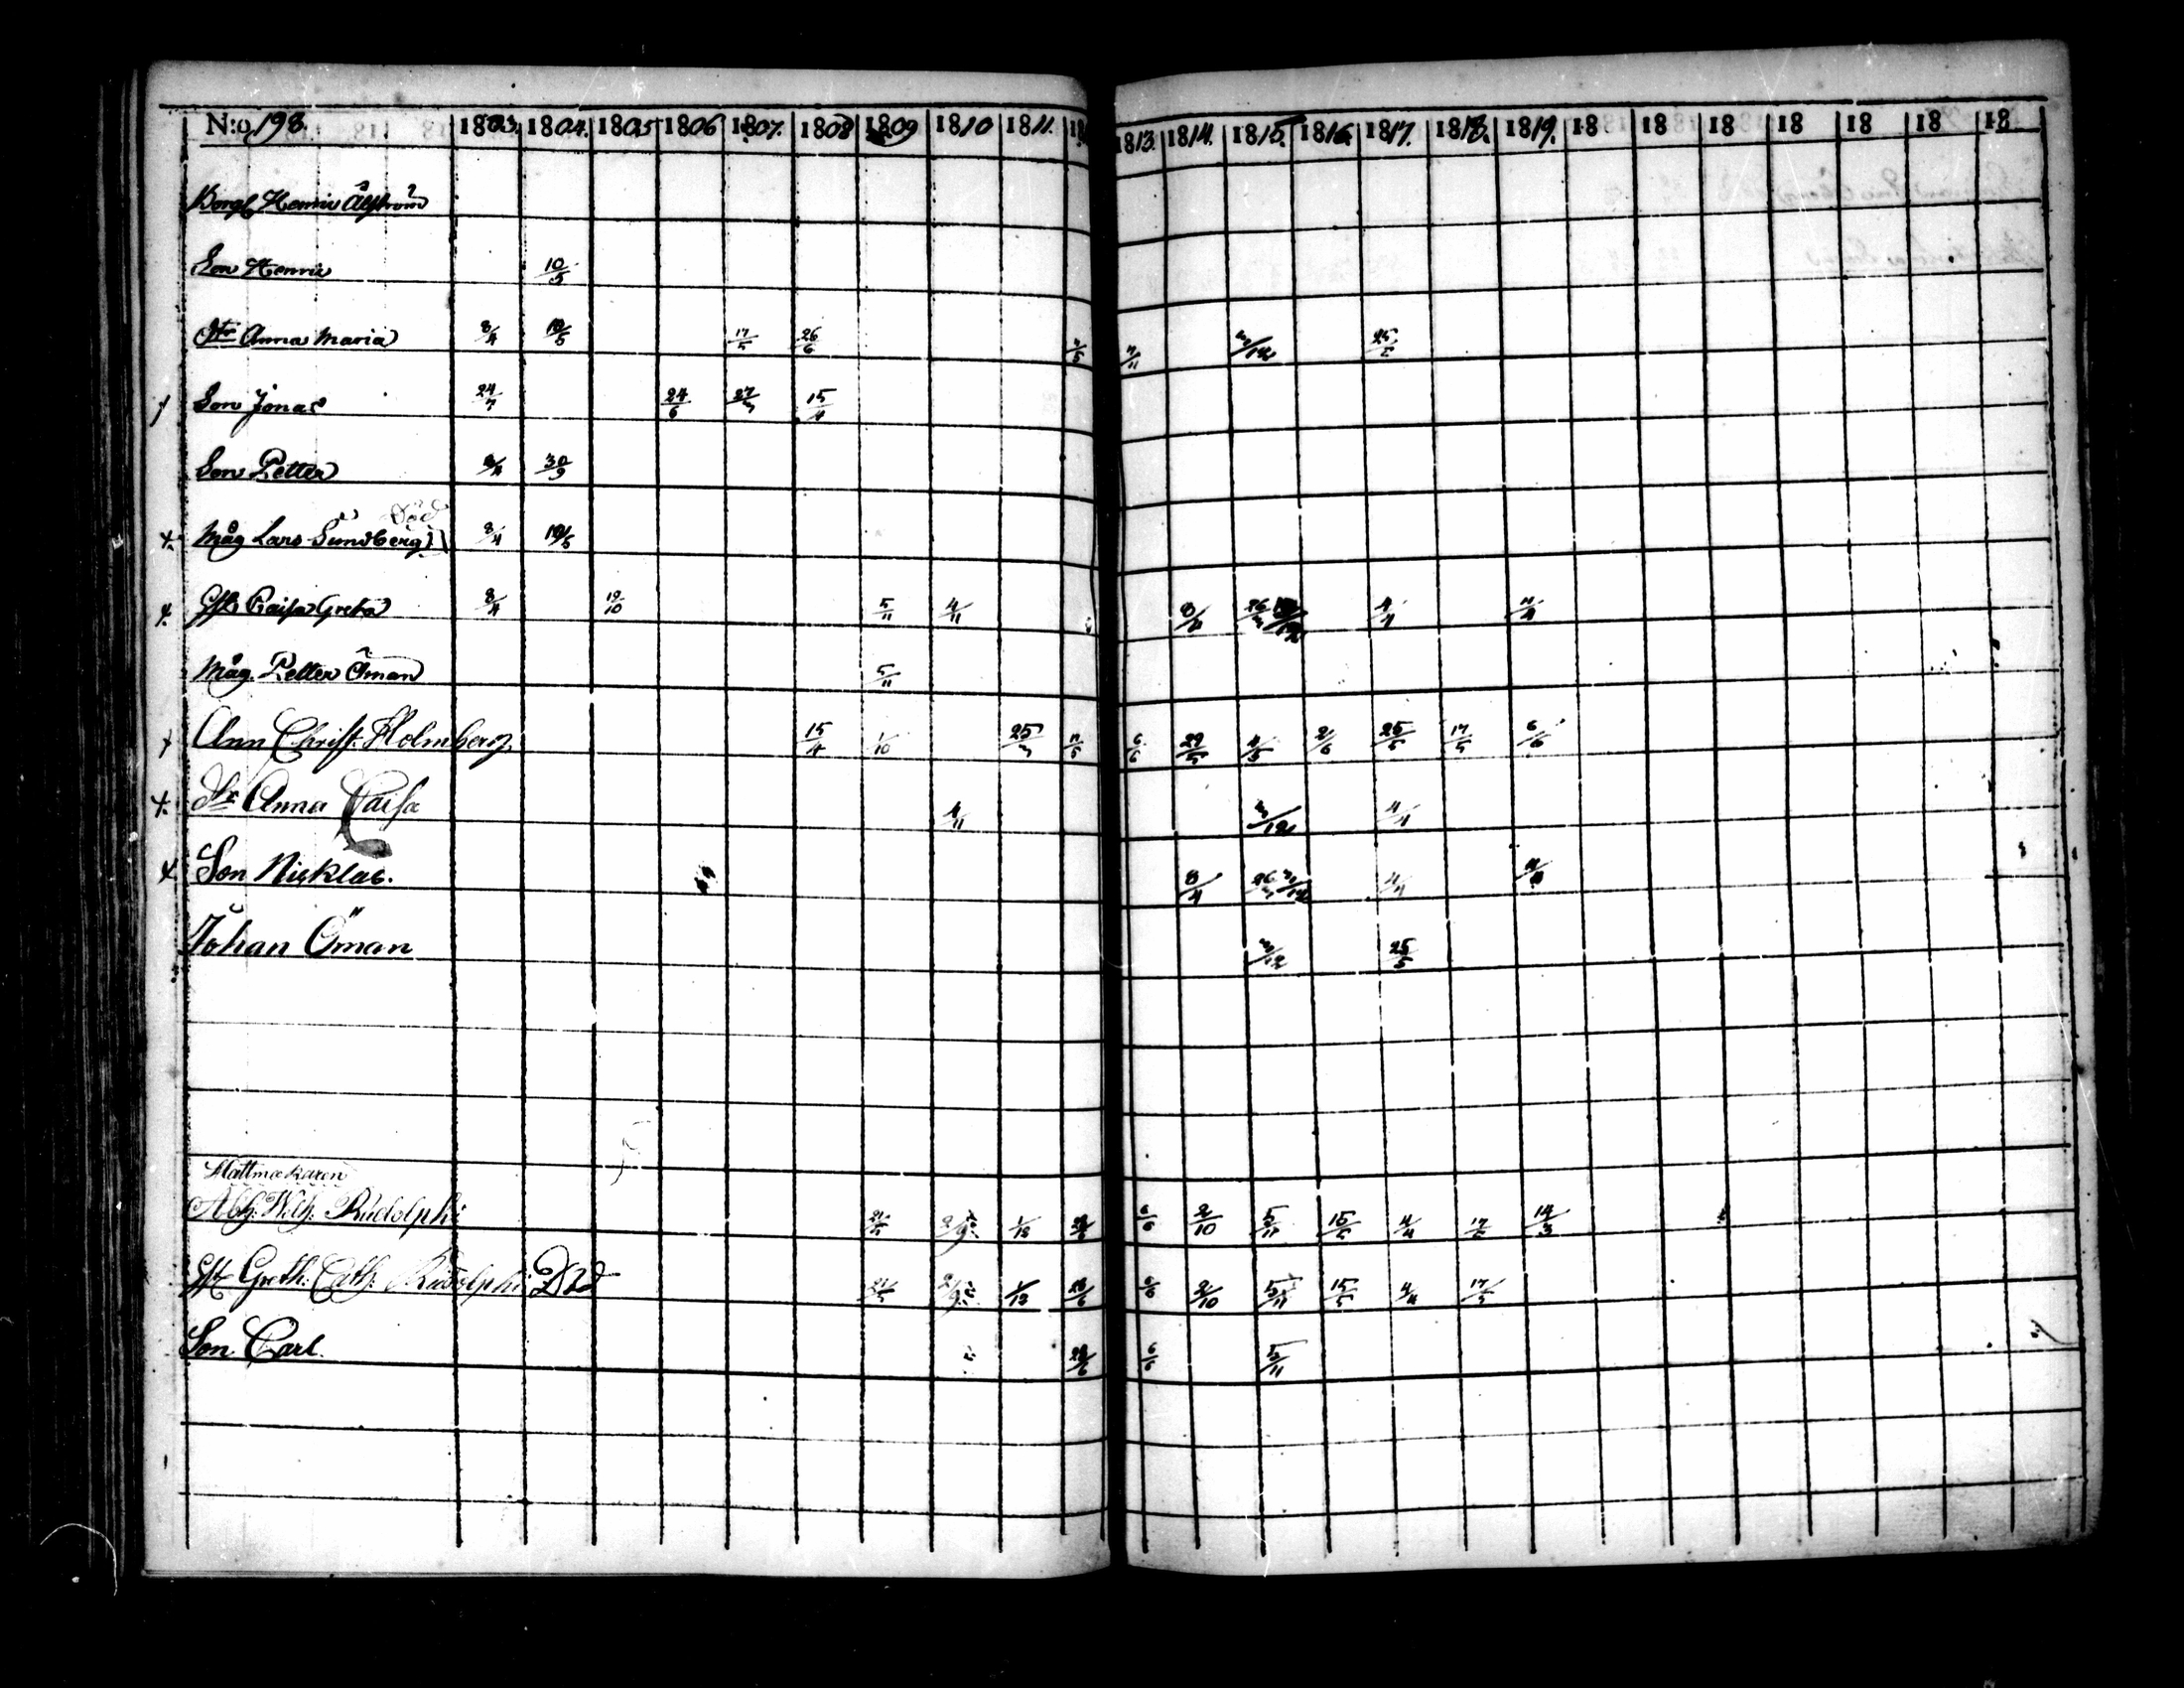 N:o 198. 1803. 1804. 1805 1806 1807. 1808 1809 1810 1811. 18 1813. 1814. 1815. 1816. 1817. 1818. 1819. 18 18 18 18 18 18 18
Borg. Henric Åhström
Son Henric 10/5
Dtr Anna Maria 8/4 10/5 17/5 26/6 7/5 7/11 3/12 25/5
Son Jonas 24/7 24/6 27/3 15/4
Son Petter 8/4 30/9
Död
Måg Lars Sundberg 8/4 10/5
Hu Caisa Greta 8/4 19/10 5/11 4/11 8/4 26/3 4/4 11/4
Måg. Petter Öman 5/11
Ann Christ. Holmberg 15/4 1/10 25/3 11/5 6/6 29/5 4/5 2/6 25/5 17/5 6/6
Dr Anna Caisa 4/11 3/12 4/4
Son Nicklas. 8/4 26/3 3/12 4/4 11/4
Johan Öman 3/12 25/5
Hattmakaren
Abh. Wilh. Rudolphi 21/5 2/9 1/12 28/6 6/6 2/10 5/11 15/5 4/4 17/5 14/3
Greth. Cath. Rudolphi Död 21/5 2/9 1/12 28/6 6/6 2/10 5/11 15/5 4/4 17/5
Son Carl. 28/6 6/6 5/11